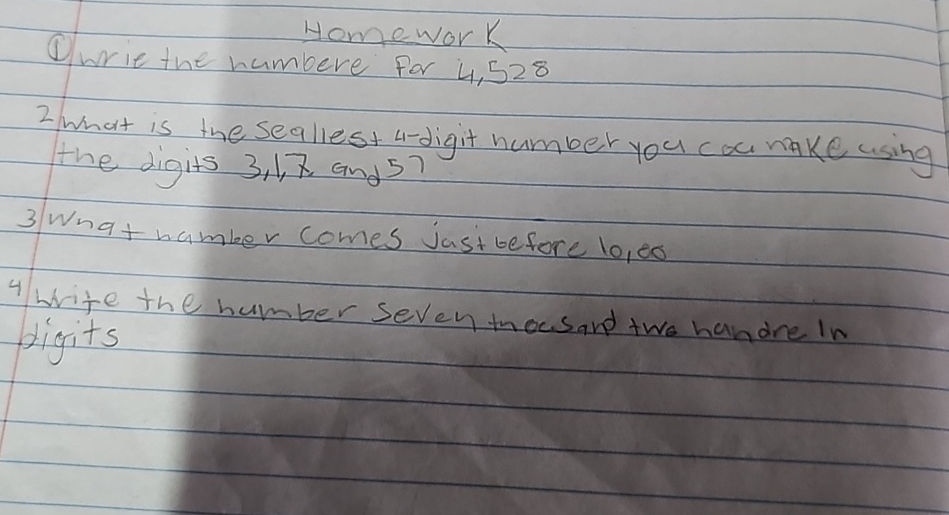 Homework
① wrie the numbere for 4,528
2 What is the seallest 4-digit number you cou make using
the digits 3,1,7, and 5?
3 Wnat number comes just before 10,00
4 Write the number seven thousand two handre In
digits